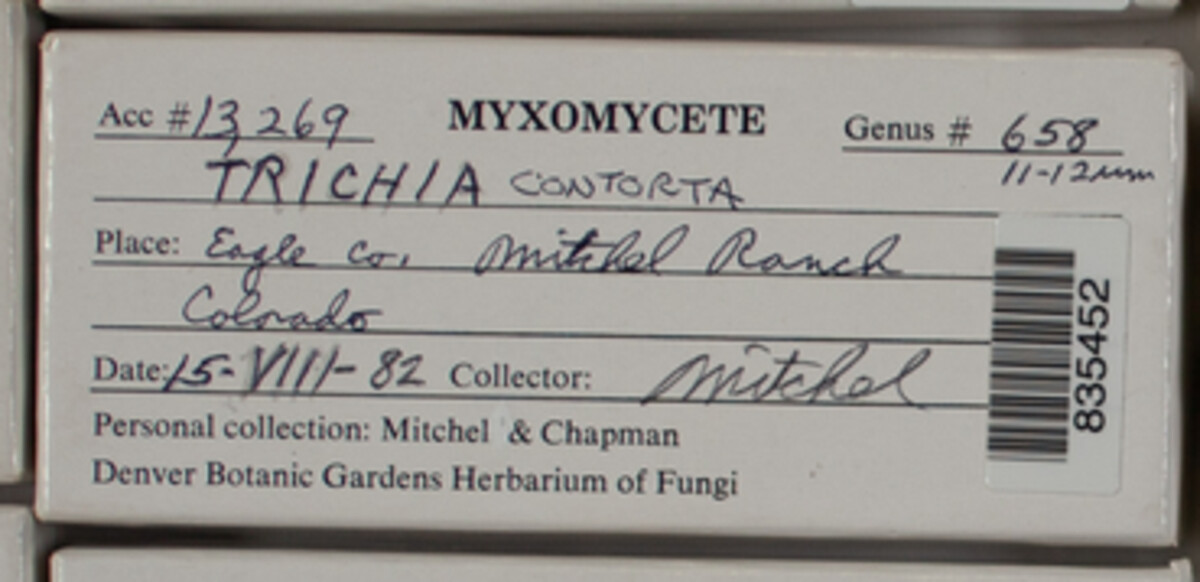 Acc # 13,269 MYXOMYCETE Genus # 658
11-12 µm
TRICHIA CONTORTA
Place: Eagle Co. Mitchel Ranch
Colorado
Date: 15-VIII-82 Collector: Mitchel
Personal collection: Mitchel & Chapman
Denver Botanic Gardens Herbarium of Fungi
835452